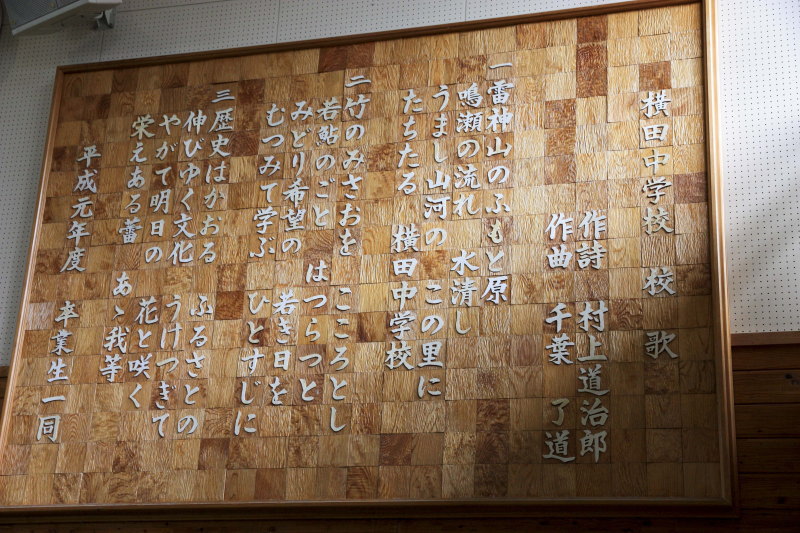 横田中学校 校歌
作詩 村上道治郎
作曲 千葉 了道
一 雷神山のふもと原
鳴瀬の流れ 水清し
うまし山河の この里に
たちたる 横田中学校
二 竹のみさおを こころとし
若鮎のごと はつらつと
みどり希望の 若き日を
むつみて学ぶ ひとすじに
三 歴史はかおる ふるさとの
伸びゆく文化 うけつぎて
やがて明日の 花と咲く
栄えある蕾 あゝ我等
平成元年度 卒業生一同